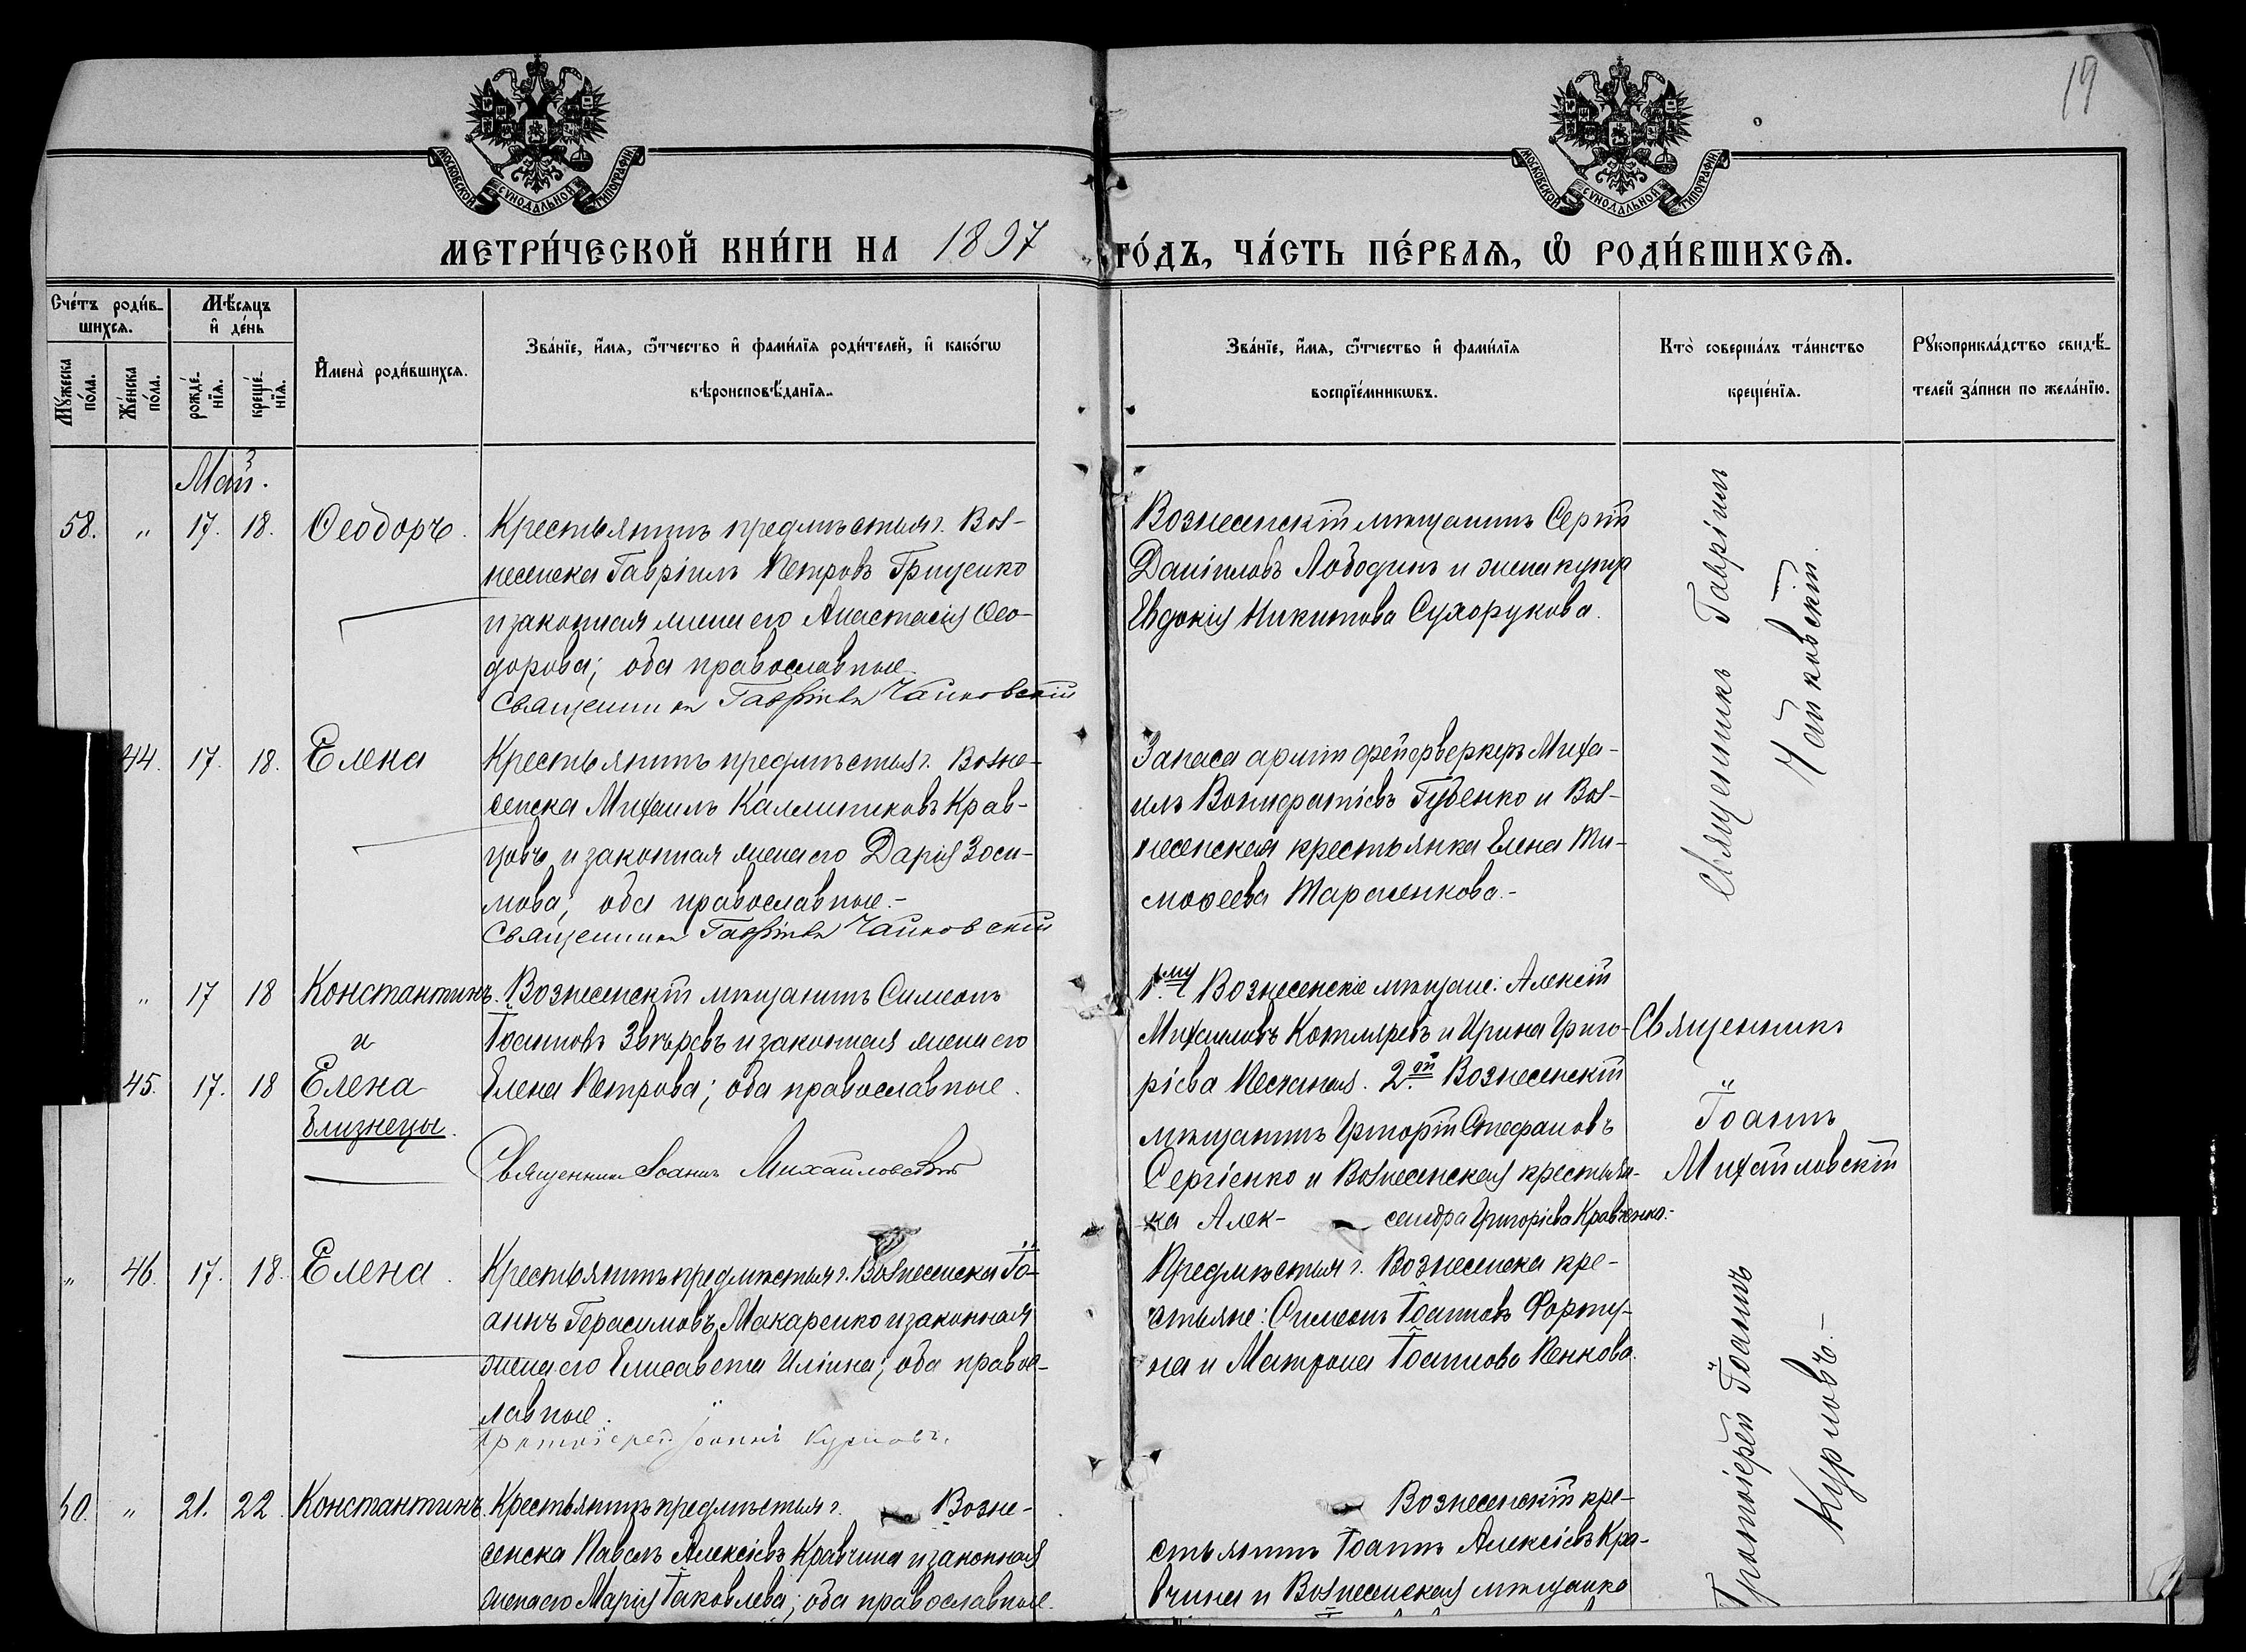 19
МОСКОВСКОЙ СѴНОДАЛЬНОЙ ТИПОГРАФІИ
МОСКОВСКОЙ СѴНОДАЛЬНОЙ ТИПОГРАФІИ
МЕТРИ́ЧЕСКОЙ КНИ́ГИ НА 1897 ГО́ДЪ, ЧА́СТЬ ПЕ́РВАѦ, Ѽ РОДИ́ВШИХСѦ.
Сче́тъ роди́в-
шихсѧ.
Мѣ́сяцъ
и҆ де́нь
Мꙋ́жеска
по́ла.
Же́нска
по́ла.
рожде́-
нїѧ.
креще́-
нїѧ.
И҆мена̀ роди́вшихсѧ.
Зва́нїе, и҆́мѧ, ѻ҆́тчество и҆ фами́лїѧ роди́телей, и҆ како́гѡ
вѣроисповѣ́данїѧ.
Зва́нїе, и҆́мѧ, ѻ҆́тчество и҆ фами́лїѧ
воспрїе́мникѡвъ.
Кто̀ соверша́лъ та́инство
креще́нїѧ.
Рꙋкоприкла́дство свидѣ́-
телей за́писи по жела́нїю.
Май.
58. " 17. 18. Ѳеодоръ.
Крестьянинъ предмѣстья г. Воз-
несенска Гавріилъ Петровъ Гриценко
и законная жена его Анастасія Ѳео-
дорова; оба православные
Священникъ Гавріилъ Чайковскій
Вознесенскій мѣщанинъ Сергій
Даніиловъ Лободинъ и жена купца
Евдокія Никитова Сухорукова.
Священникъ Гавріилъ
Чайковскій.
44. 17. 18. Елена
Крестьянинъ предмѣстья г. Возне-
сенска Михаилъ Каллиниковъ Крав-
цовъ и законная жена его Дарія Зоси-
мова; оба православные.-
Священникъ Гавріилъ Чайковскій
Запаса арміи фейерверкеръ Миха-
илъ Вонифатіевъ Губенко и Воз-
несенская крестьянка Елена Ти-
моѳеева Тарасенкова.-
" 17 18 Константинъ.
и
45. 17. 18 Елена
Близнецы.
Вознесенскій мѣщанинъ Симеонъ
Іоанновъ Звѣревъ и законная жена его
Елена Петрова; оба православные.
Священникъ Іоаннъ Михайловскій
1.му Вознесенскіе мѣщане: Алексій
Михаиловъ Котляревъ и Ирина Григо-
рієва Песчаная. 2.ой Вознесенскій
мѣщанинъ Григорій Стефановъ
Сергіенко и Вознесенская крестьян-
ка Алек- сандра Григорієва Кравченко.-
Священникъ
Іоаннъ
Михайловскій
" 46. 17. 18. Елена.
Крестьянинъ предмѣстья г. Вознесенска Іо-
аннъ Герасимовъ Макаренко и законная
жена его Елисавета Иліина; оба правос-
лавные.
Протоіерей Іоаннъ Курловъ.
Предмѣстья г. Вознесенска кре-
стьяне: Симеонъ Іоанновъ Форту-
на и Матрона Іоаннова Пенкова.
Протоіерей Іоаннъ
Курловъ.-
60. " 21. 22. Константинъ.
Крестьянинъ предмѣстья г. Возне-
сенска Павелъ Алексіевъ Кравчина и законная
жена его Марія Іаковлева; оба православные.
Вознесенскій кре-
стьянинъ Іоаннъ Алексіевъ Кра-
вчина и Вознесенская мѣщанка